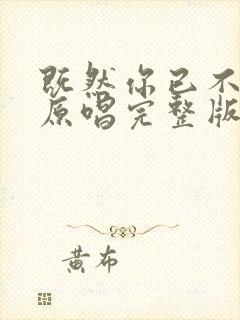 既然你已不
原唱完整版
黄布